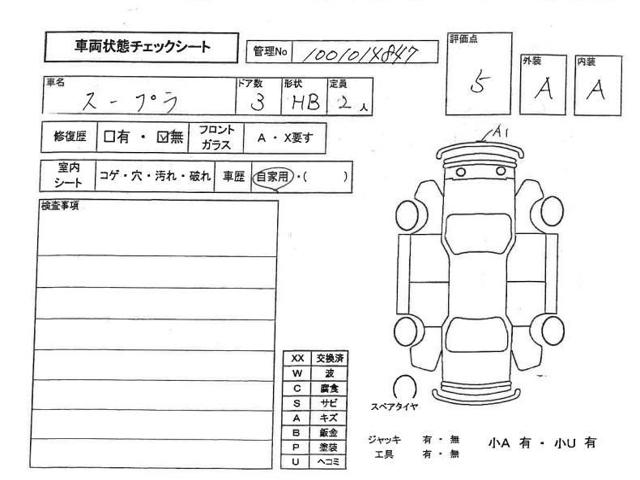 車両状態チェックシート
管理No 1001014847
評価点
5
外装
A
内装
A
車名
スープラ
ドア数
3
形状
HB
定員
2人
修復歴 □有・☑無
フロントガラス A・X要す
室内シート コゲ・穴・汚れ・破れ
車歴 自家用・( )
検査事項
A1
XX 交換済
W 波
C 腐食
S サビ
A キズ
B 鈑金
P 塗装
U ヘコミ
スペアタイヤ
ジャッキ 有・無
工具 有・無
小A 有・小U 有